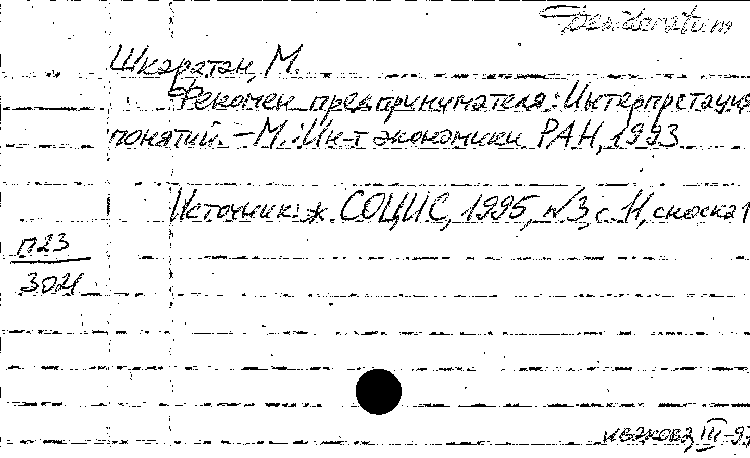 Desideratum
Шкаратан, М.
Феномен предпринимателя: Интерпретация
понятий. – М.: Ин-т экономики РАН, 1993
Источник: ж. СОЦИС, 1995, №3, с. 11, сноска 1
П23
3021
Иванова, III-97